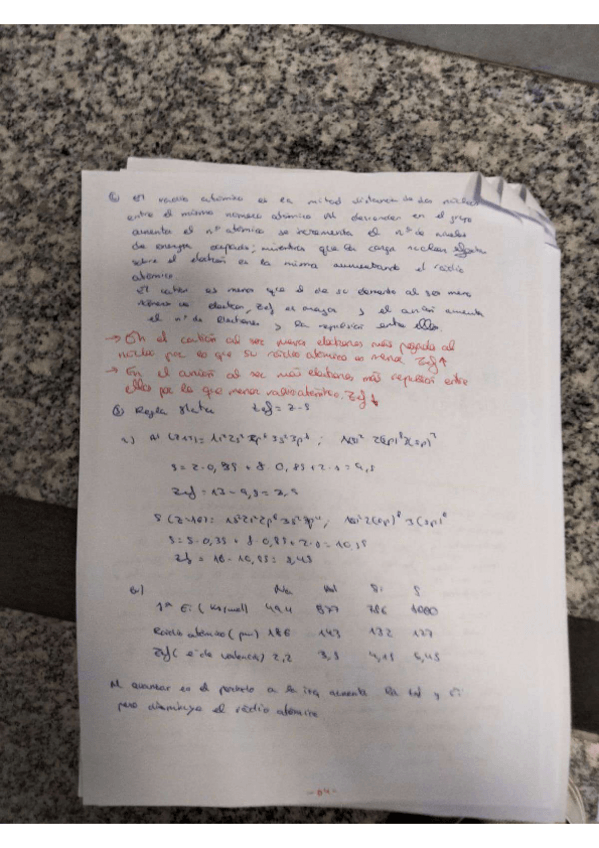 El radio atómico es la mitad distancia de dos núcleos
entre el mismo número atómico. Al descender en el grupo
aumenta el nº atómico se incrementa el nº de niveles
de energía ocupado; mientras que la carga nuclear
sobre el electrón es la misma aumentando el radio
atómico.
El es menor que el de su elemento al ser menos
electrón, Zef es mayor y el anión aumenta
el nº de electrones y la repulsión entre ellos.
→ En el catión al ser menos electrones más pegado al
núcleo por eso que su radio atómico es menor. Zef↑
→ En el anión al ser más electrones más repulsión entre
ellos por lo que menor radio atómico. Zef↓
Regla Slater Zef = Z - S
Al (Z=13) = 1s² 2s² 2p⁶ 3s² 3p¹ ;
S = 2·0,35 + 8·0,85 + 2·1 = 9,5
Zef = 13 - 9,5 = 3,5
S (Z=16) = 1s² 2s² 2p⁶ 3s² 3p⁴,
S = 5·0,35 + 8·0,85 + 2·
Zef = 16 -
Na Al Si S
1ª Ei (KJ/mol) 494 577 786 1000
Radio atómico (pm) 186 143 132 127
Zef (e⁻ de valencia) 2,2 3,5 4,15 5,45
Al avanzar en el período a la aumenta
pero disminuye el radio atómico
- 04 -